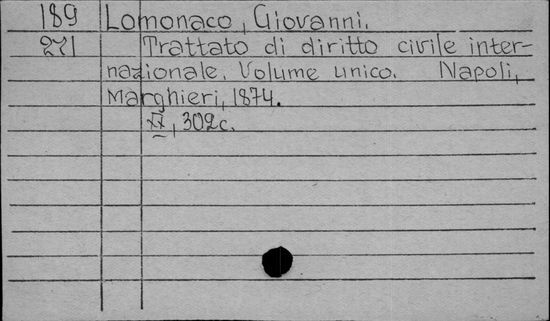 189 Lomonaco, Giovanni.
271 Trattato di diritto civile inter-
nazionale. Volume unico. Napoli,
Marghieri, 1874.
XX, 302 c.